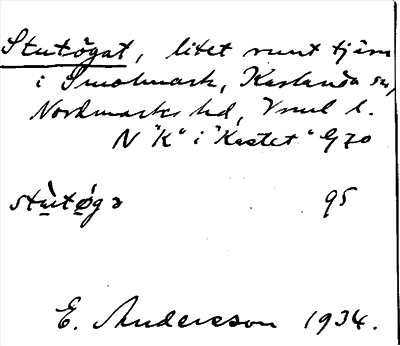 Stutögat, litet runt tjärn
i Smolmark, Karlanda sn,
Nordmarks hd, Vrml l.
N "K" i "Kastet" G 70
stùtø̀gə 95
E. Andersson 1934.